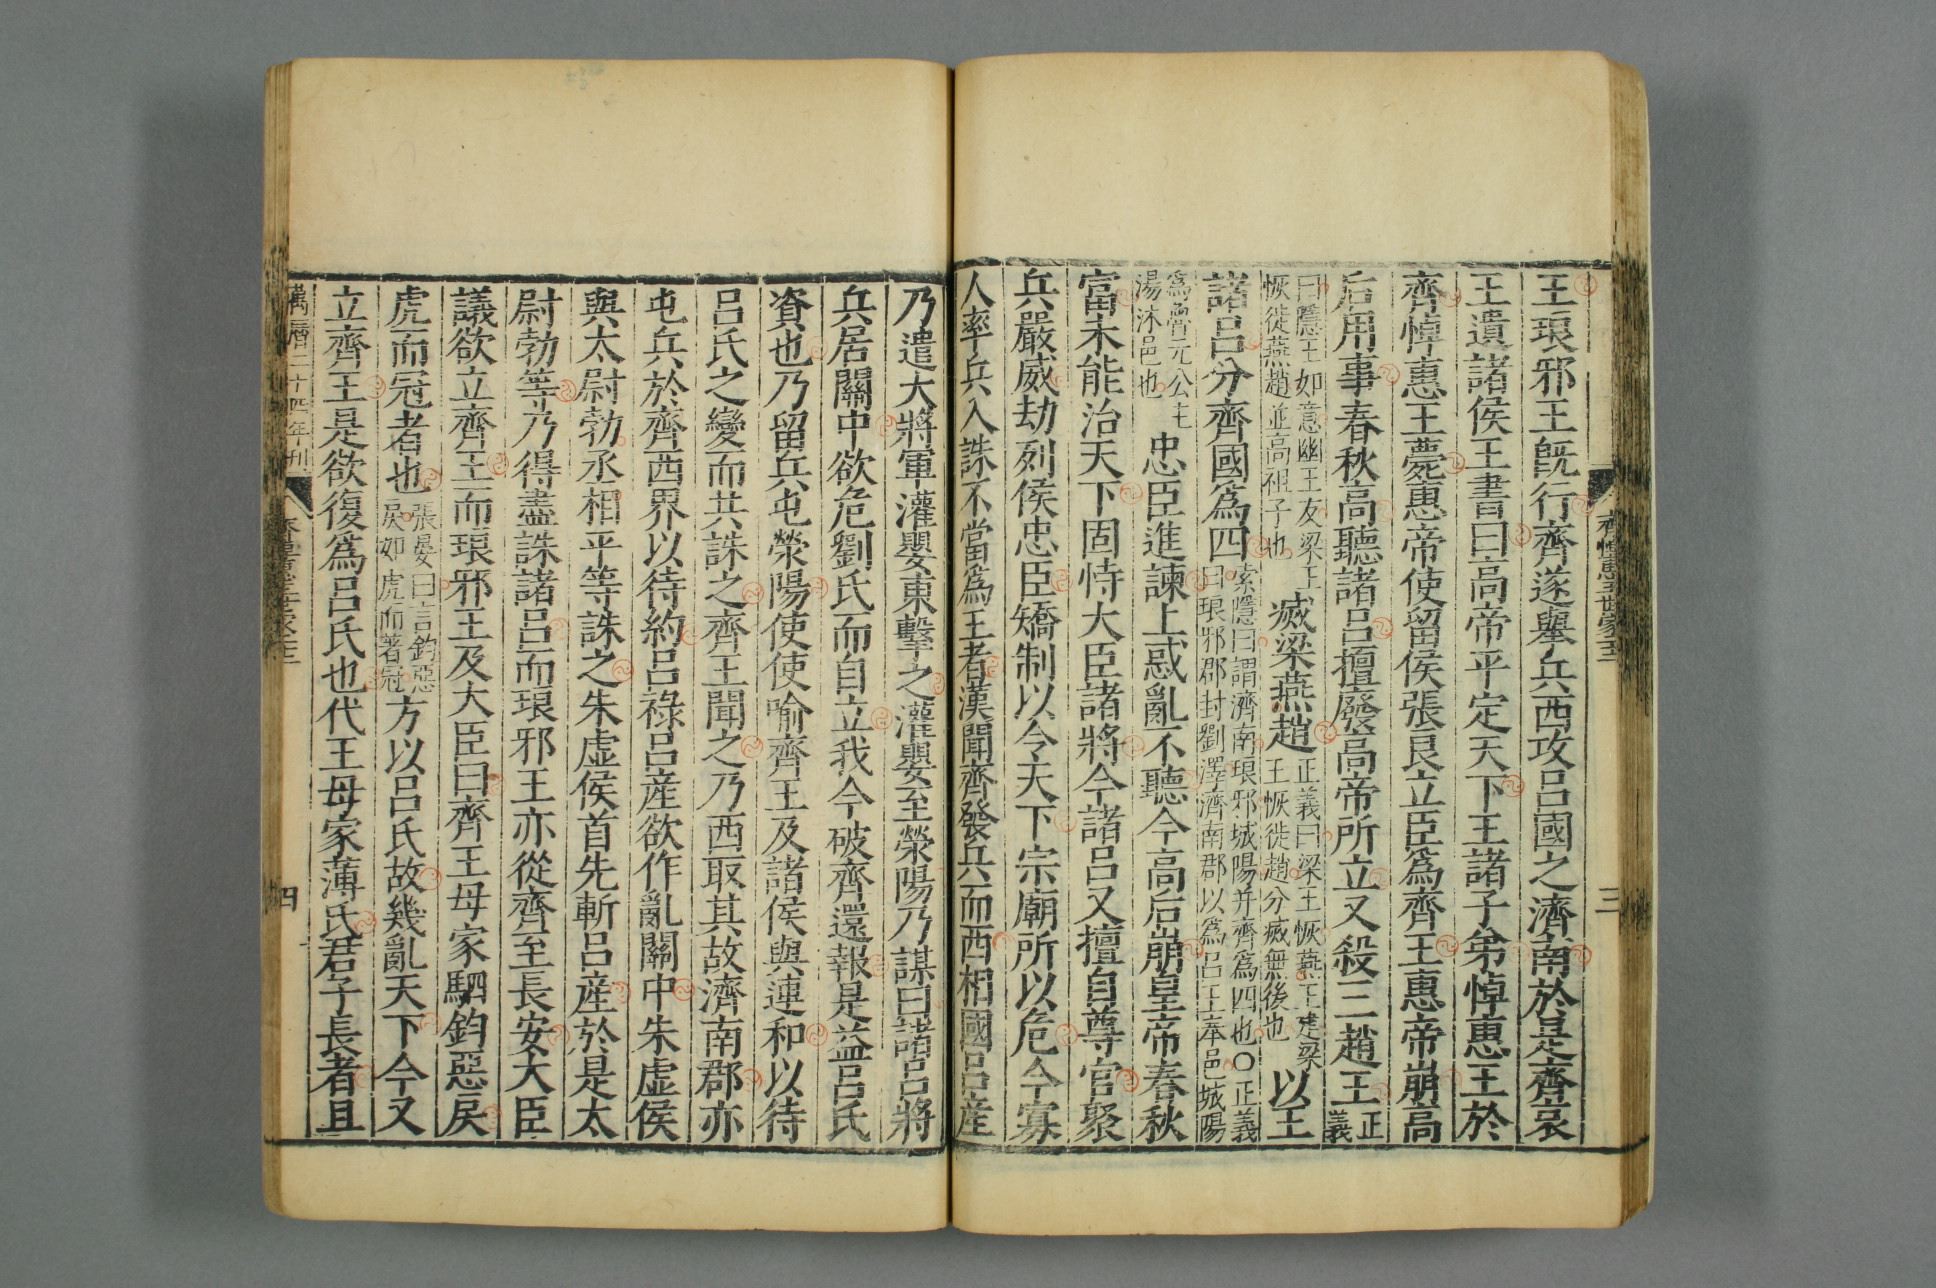 齊悼惠王世家二十二
三
王琅邪王既行齊遂舉兵西攻呂國之濟南於是齊哀
王遺諸侯王書曰高帝平定天下王諸子弟悼惠王於
齊悼惠王薨惠帝使留侯張良立臣爲齊王惠帝崩高
后用事春秋高聽諸呂擅廢高帝所立又殺三趙王正義
曰隱王如意幽王友梁王恢徙燕趙並高祖子也滅梁燕趙正義曰梁王恢燕王建梁王恢徙趙分滅無後也以王
諸呂分齊國爲四索隱曰謂濟南琅邪城陽并齊爲四也○正義曰琅邪郡封劉澤濟南郡以爲呂王奉邑城陽
爲魯元公主湯沐邑也忠臣進諫上惑亂不聽今高后崩皇帝春秋
富未能治天下固恃大臣諸將今諸呂又擅自尊官聚
兵嚴威劫列侯忠臣矯制以令天下宗廟所以危今寡
人率兵入誅不當爲王者漢聞齊發兵而西相國呂産
乃遣大將軍灌嬰東擊之灌嬰至滎陽乃謀曰諸呂將
兵居關中欲危劉氏而自立我今破齊還報是益呂氏
資也乃留兵屯滎陽使使喻齊王及諸侯與連和以待
呂氏之變而共誅之齊王聞之乃西取其故濟南郡亦
屯兵於齊西界以待約呂祿呂産欲作亂關中朱虛侯
與太尉勃丞相平等誅之朱虛侯首先斬呂産於是太
尉勃等乃得盡誅諸呂而琅邪王亦從齊至長安大臣
議欲立齊王而琅邪王及大臣曰齊王母家駟鈞惡戾
虎而冠者也張晏曰言鈞惡戾如虎而著冠方以呂氏故幾亂天下今又
立齊王是欲復爲呂氏也代王母家薄氏君子長者且
萬曆二十四年刊
四